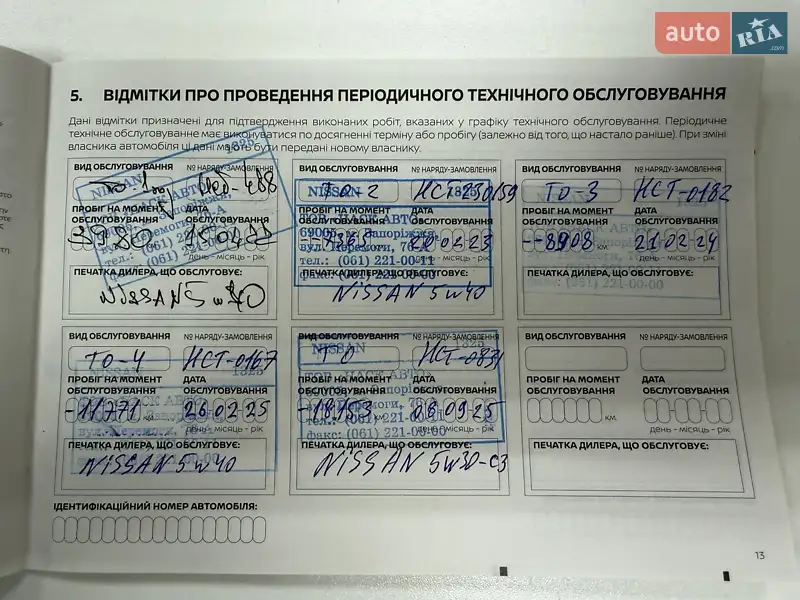 auto RIA.com
5. ВІДМІТКИ ПРО ПРОВЕДЕННЯ ПЕРІОДИЧНОГО ТЕХНІЧНОГО ОБСЛУГОВУВАННЯ
Дані відмітки призначені для підтвердження виконаних робіт, вказаних у графіку технічного обслуговування. Періодичне
технічне обслуговуванне має виконуватися по досягненні терміну або пробігу (залежно від того, що настало раніше). При зміні
власника автомобіля ці дані мають бути передані новому власнику.
ВИД ОБСЛУГОВУВАННЯ № НАРЯДУ-ЗАМОВЛЕННЯ
ТО-1
ПРОБІГ НА МОМЕНТ ОБСЛУГОВУВАННЯ ДАТА
день - місяць - рік
ПЕЧАТКА ДИЛЕРА, ЩО ОБСЛУГОВУЄ:
NISSAN 5w40
ВИД ОБСЛУГОВУВАННЯ № НАРЯДУ-ЗАМОВЛЕННЯ
ТО-2
ПРОБІГ НА МОМЕНТ ОБСЛУГОВУВАННЯ ДАТА
NISSAN 1325
69005, м. Запоріжжя,
вул. Перемоги,
тел.: (061) 221-00-11
факс: (061) 221-00-00
ПЕЧАТКА ДИЛЕРА, ЩО ОБСЛУГОВУЄ:
NISSAN 5w40
ВИД ОБСЛУГОВУВАННЯ № НАРЯДУ-ЗАМОВЛЕННЯ
ТО-3 НСТ-0182
ПРОБІГ НА МОМЕНТ ОБСЛУГОВУВАННЯ ДАТА
--8908 км. 21-02-24
день - місяць - рік
ПЕЧАТКА ДИЛЕРА, ЩО ОБСЛУГОВУЄ:
факс: (061) 221-00-00
ВИД ОБСЛУГОВУВАННЯ № НАРЯДУ-ЗАМОВЛЕННЯ
ТО-4 НСТ-0167
ПРОБІГ НА МОМЕНТ ОБСЛУГОВУВАННЯ ДАТА
NISSAN 1325
-11771 км. 26-02-25
день - місяць - рік
ПЕЧАТКА ДИЛЕРА, ЩО ОБСЛУГОВУЄ:
NISSAN 5w40
ВИД ОБСЛУГОВУВАННЯ № НАРЯДУ-ЗАМОВЛЕННЯ
ТО НСТ-0834
ПРОБІГ НА МОМЕНТ ОБСЛУГОВУВАННЯ ДАТА
NISSAN 1325
-18153 08-09-25
тел.: (061) 221-00-11
день - місяць - рік
факс: (061) 221-00-00
ПЕЧАТКА ДИЛЕРА, ЩО ОБСЛУГОВУЄ:
NISSAN 5w30-c3
ВИД ОБСЛУГОВУВАННЯ № НАРЯДУ-ЗАМОВЛЕННЯ
ПРОБІГ НА МОМЕНТ ОБСЛУГОВУВАННЯ ДАТА
км. день - місяць - рік
ПЕЧАТКА ДИЛЕРА, ЩО ОБСЛУГОВУЄ:
ІДЕНТИФІКАЦІЙНИЙ НОМЕР АВТОМОБІЛЯ:
13